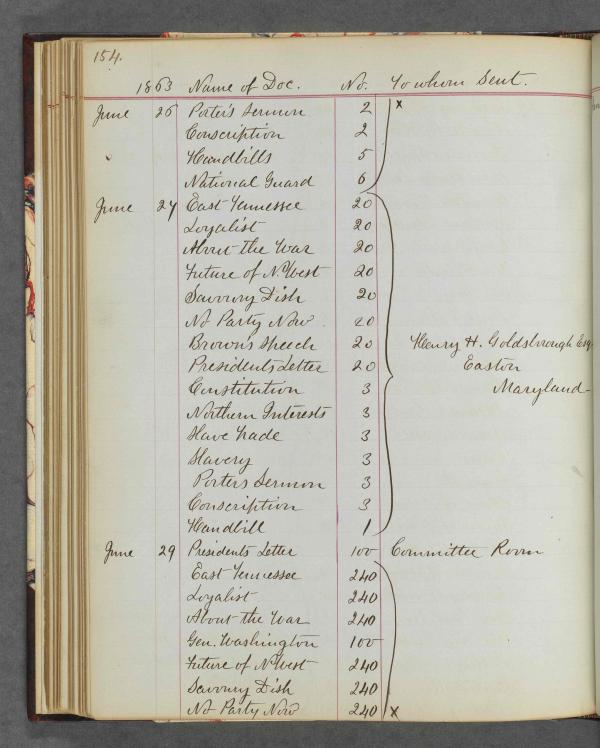 154.
1863 Name of Doc. No. To whom Sent.
June 26 Porter's Sermon 2 x
Conscription 2
Handbills 5
National Guard 6
June 27 East Tennessee 20
Loyalist 20
About the War 20
Future of N. West 20
Savoury Dish 20
No Party Now 20
Brown's Speech 20 Henry H. Goldsborough Esq.
Presidents Letter 20 Easton
Constitution 3 Maryland-
Northern Interests 3
Slave Trade 3
Slavery 3
Porters Sermon 3
Conscription 3
Handbill 1
June 29 Presidents Letter 100 Committee Room
East Tennessee 240
Loyalist 240
About the War 240
Gen. Washington 100
Future of N West 240
Savoury Dish 240
No Party Now 240 x